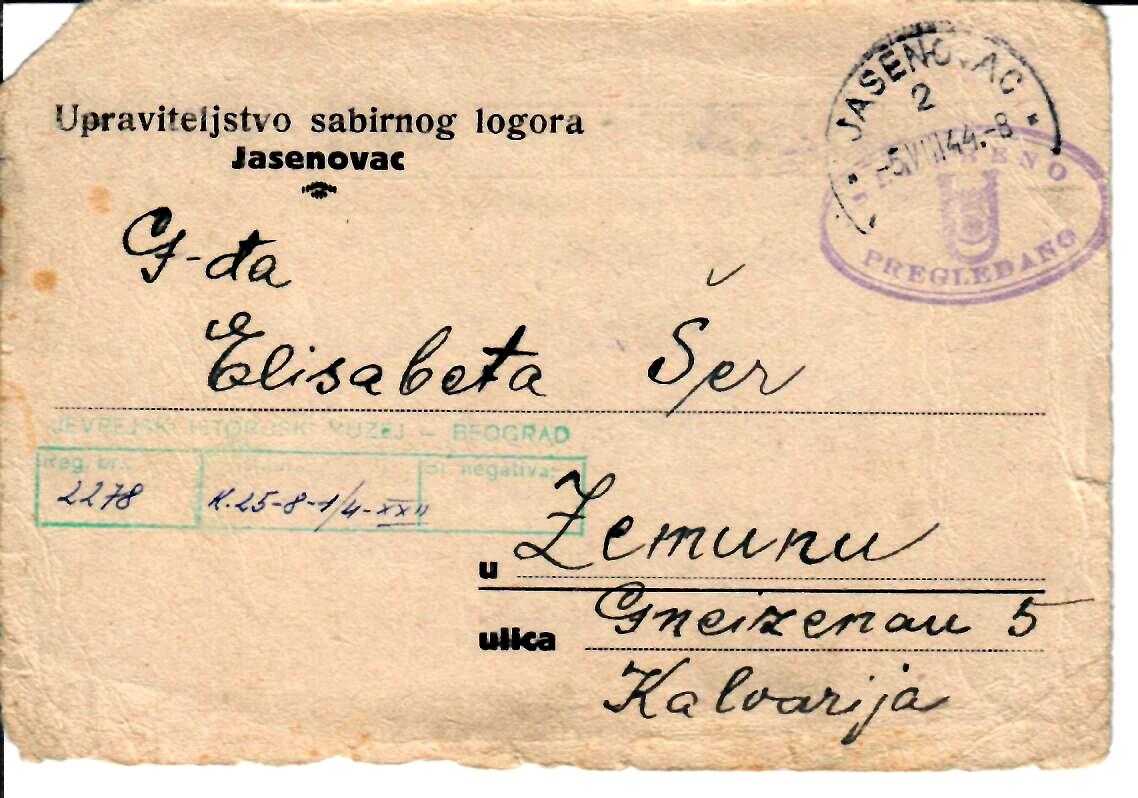 Upraviteljstvo sabirnog logora
Jasenovac
JASENOVAC
2
-5.VIII44.-8
PREGLEDANO
G-đa
Elisabeta Šer
JEVREJSKI ISTORIJSKI MUZEJ — BEOGRAD
Reg. br.
negativa
2278
K.25-8-1/4-XXII
u Zemunu
ulica Gneizenau 5
Kalvarija